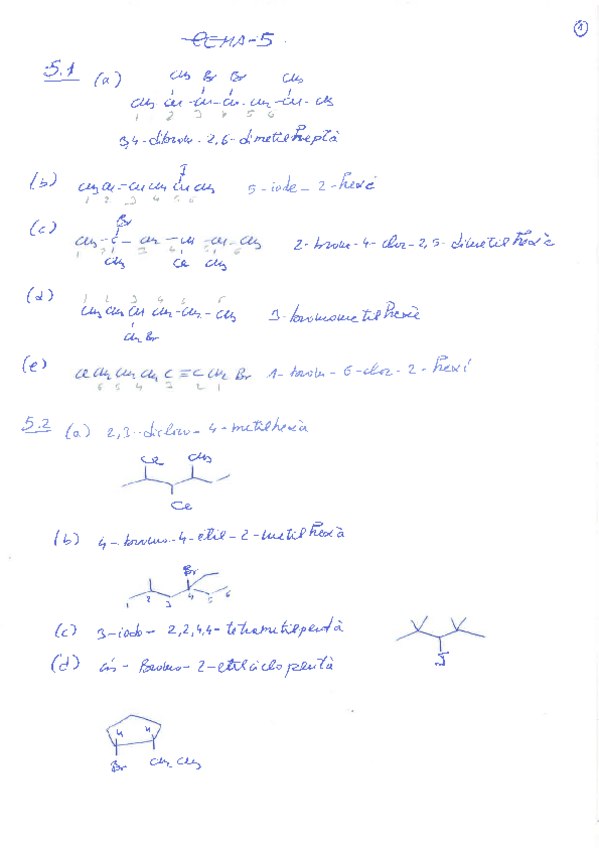 TEMA-5
1
5.1 (a) CH3 Br Br CH3
CH3 CH - CH - CH - CH2 - CH - CH3
1 2 3 4 5 6
3,4-dibrom-2,6-dimetilheptà
I
(b) CH3 CH = CH CH2 CH CH3 5-iode-2-hexè
1 2 3 4 5 6
Br
(c) CH3 - C - CH2 - CH - CH - CH3 2-brom-4-clor-2,5-dimetilhexà
CH3 Cl CH3
1 2 3 4 5 6
(d) CH3 CH2 CH CH2 - CH2 - CH3 3-bromometilhexà
CH2 Br
(e) Cl CH2 CH2 CH2 C ≡ C CH2 Br 1-brom-6-clor-2-hexí
6 5 4 3 2 1
5.2 (a) 2,3-dicloro-4-metilhexà
Cl CH3
Cl
(b) 4-bromo-4-etil-2-metilhexà
Br
1 2 3 4 5 6
(c) 3-iodo-2,2,4,4-tetrametilpentà
I
(d) cis-Bromo-2-etilciclopentà
H H
Br CH2 CH3